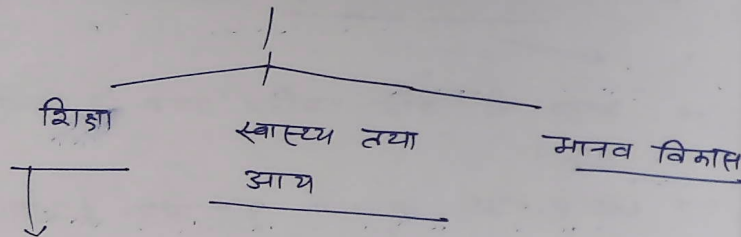 शिक्षा
स्वास्थ्य तथा
आय
मानव विकास